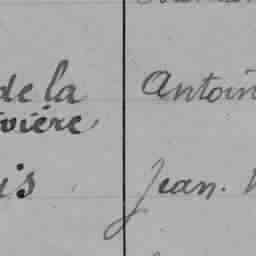 de la Antoin
vière
is Jean.